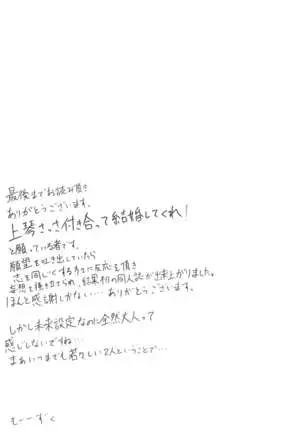 最後までお読み頂き
ありがとうございます。
上琴さっさ付き合って結婚してくれ!
と願っている者です。
願望を吐き出していたら
志を同じくする方々に反応を頂き
妄想を掻き立てられ、結果初の同人誌が出来上がりました。
ほんと感謝しかない…ありがとうございます。
しかし未来設定なのに全然大人って
感じしないですね…
まぁいつまでも若々しい2人ということで…
もーずく